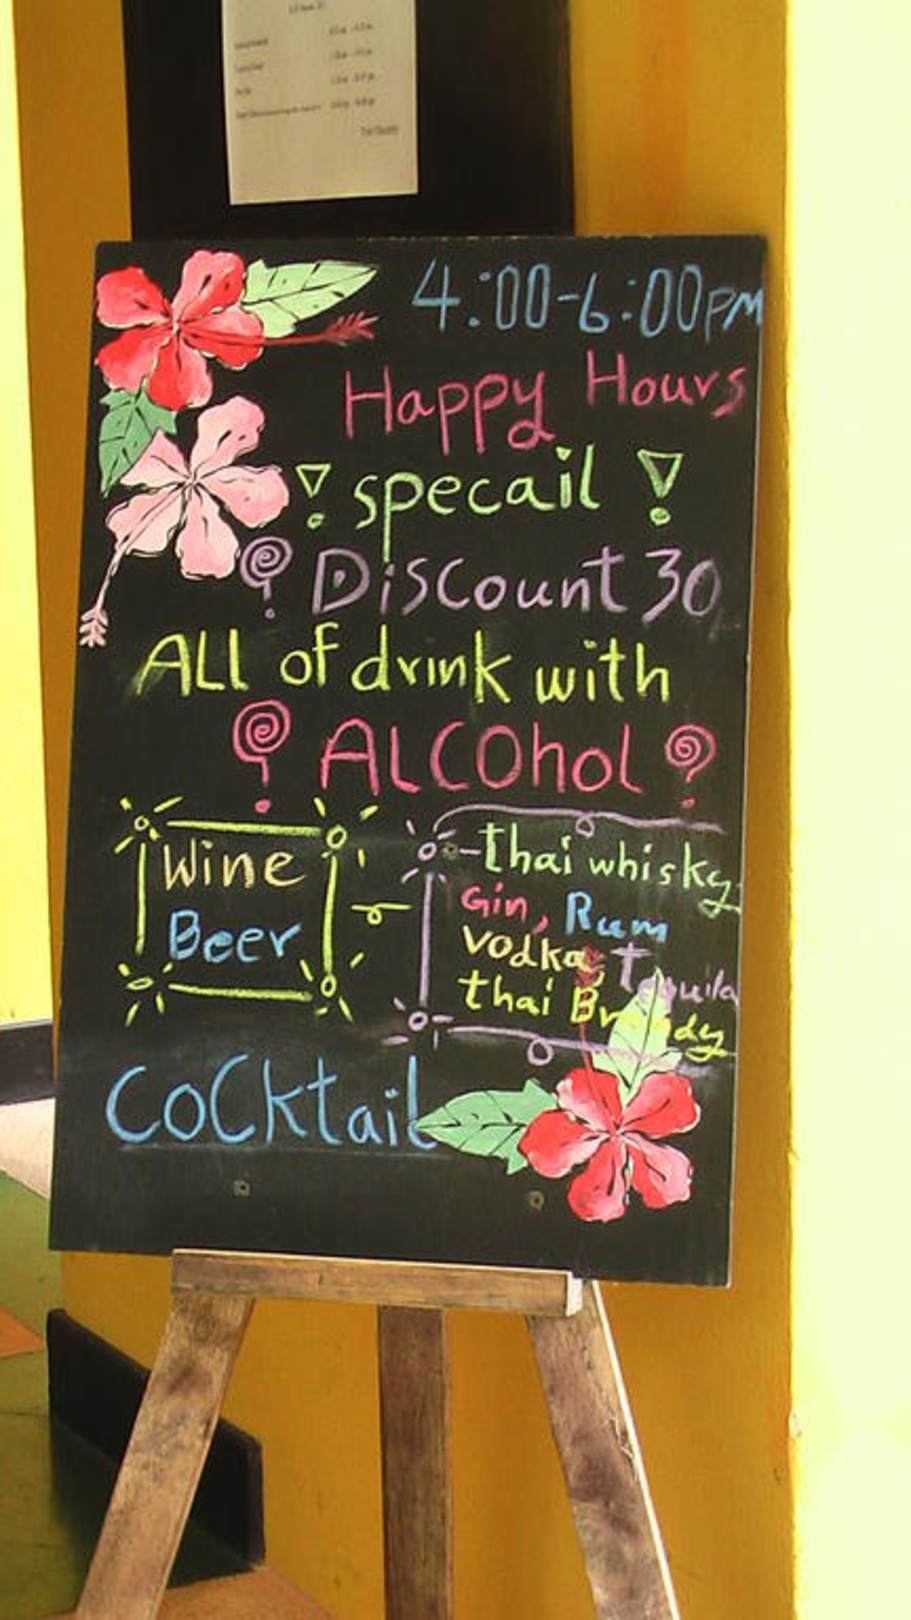 4:00-6:00PM
Happy Hours
! specail !
! Discount 30
ALL of drink with
! ALCOhol !
Wine
Beer
-thai whisky
Gin, Rum
Vodka, Tequila
thai Brandy
CoCktail